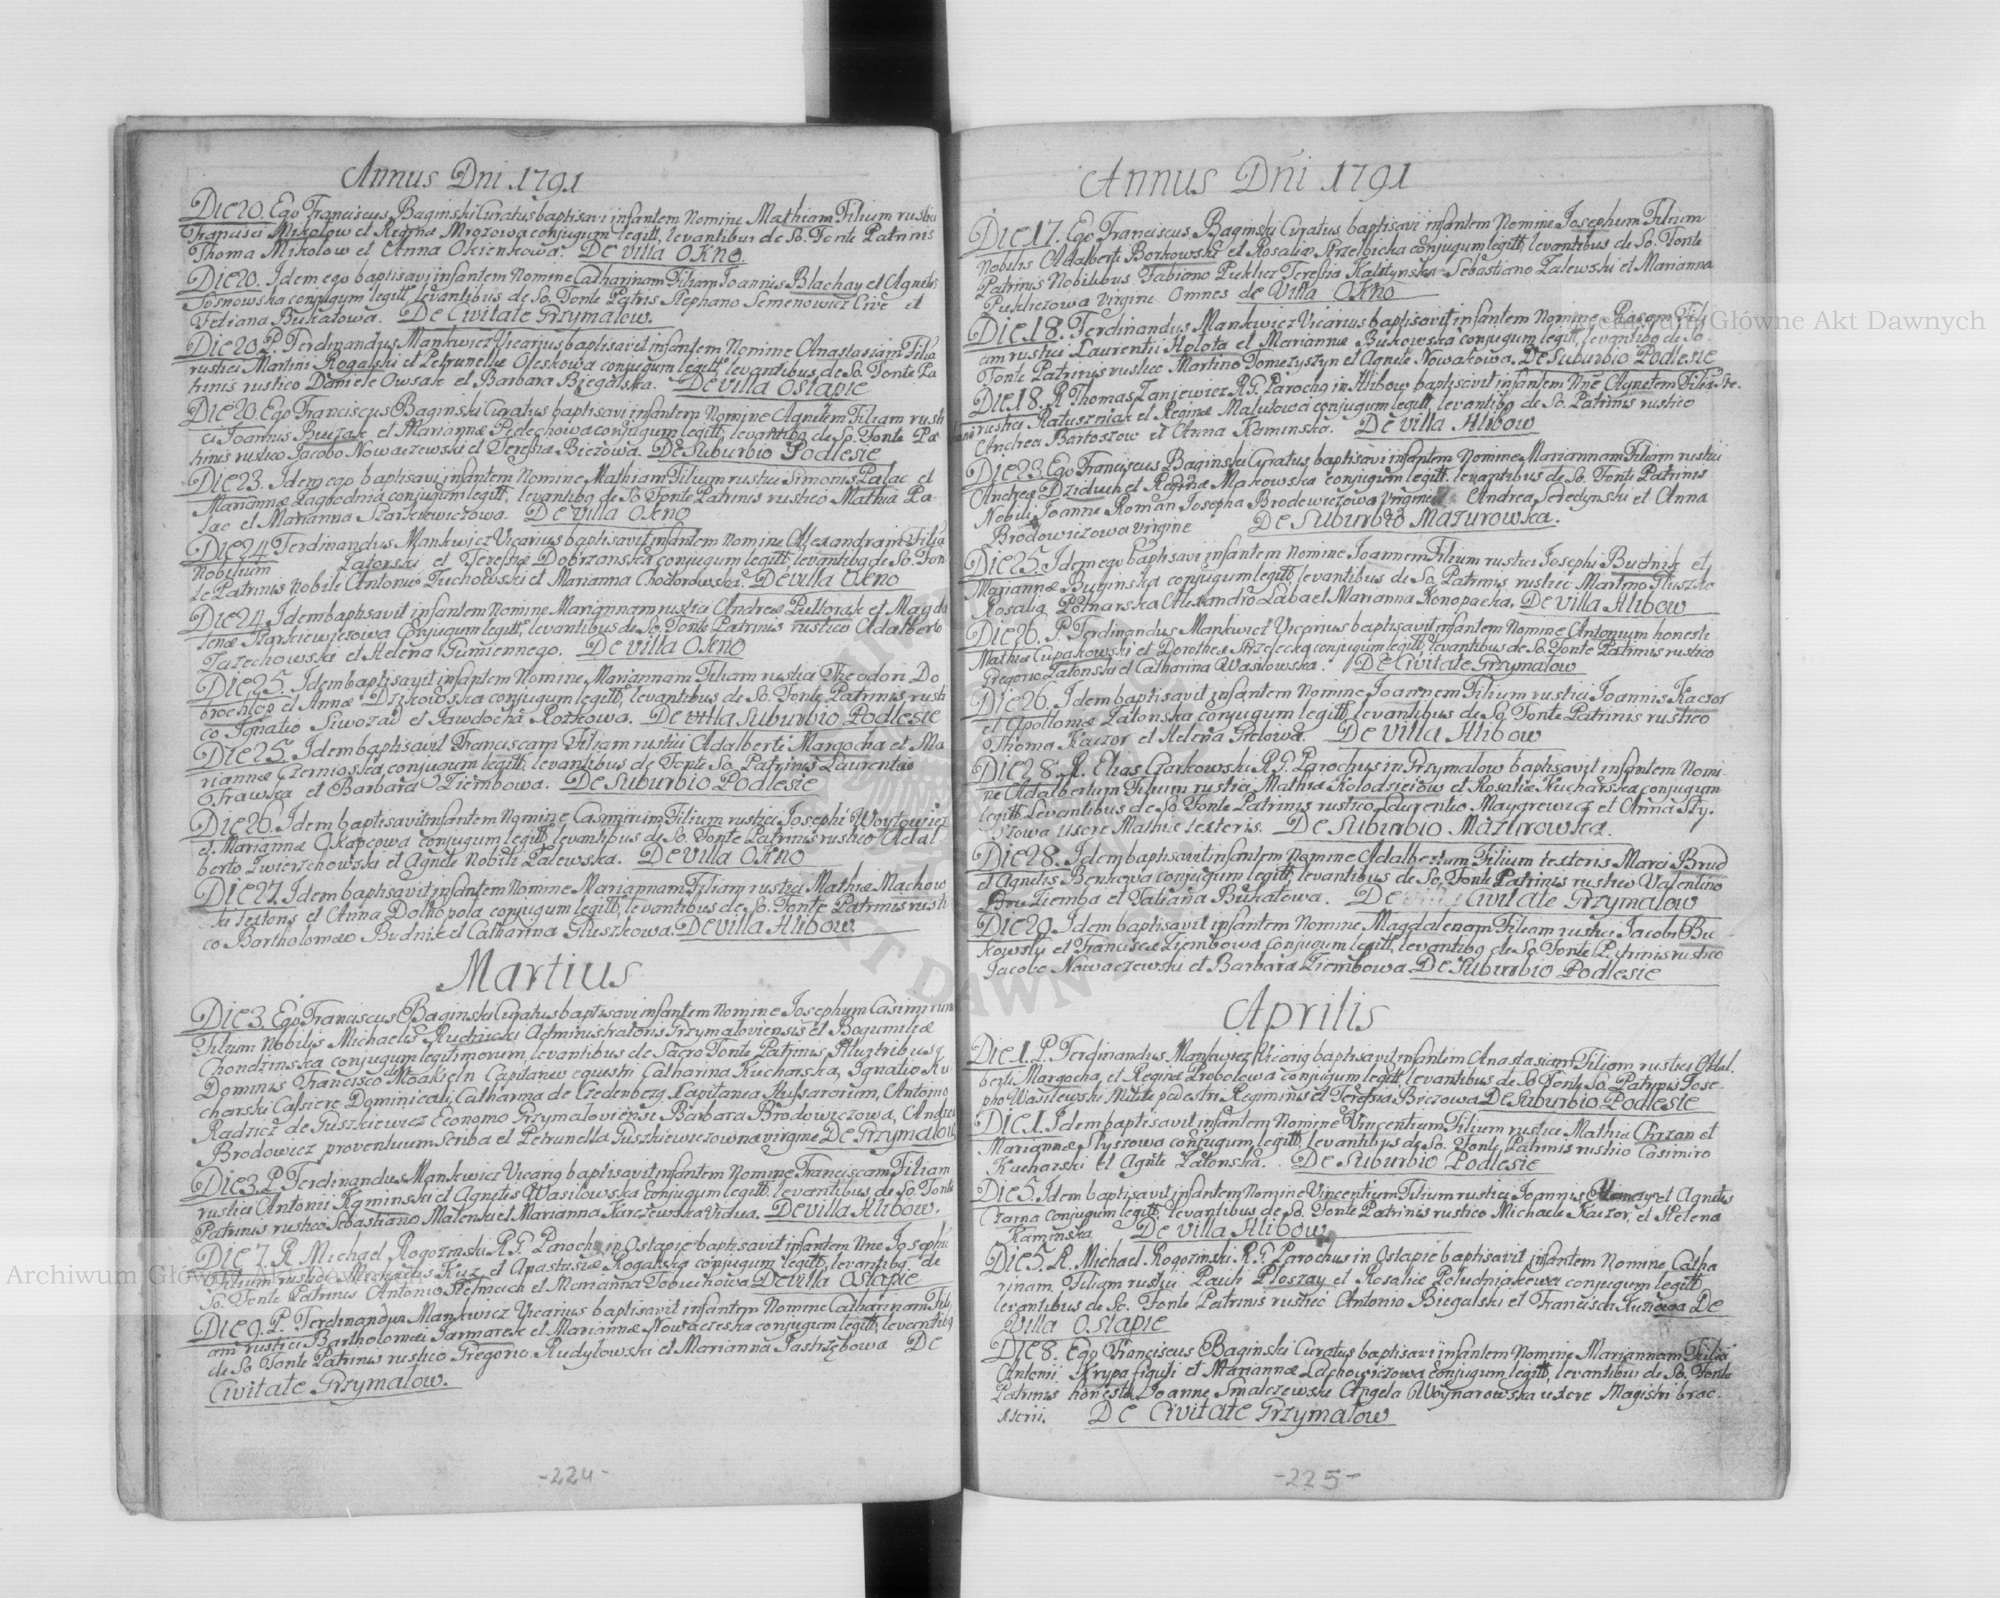 Annus Dni 1791
Die 20. Ego Franciscus Baginski Curatus baptisavi infantem Nomine Mathiam Filium rustici
Francisci Mikolow et Reginæ Mrozowa conjugum legitt, levantibus de So. Fonte Patrinis
Thoma Mikolow et Anna Okienkowa. De Villa Okno.
Die 20. Idem ego baptisavi infantem Nomine Catharinam Filiam Joannis Blachay et Agnetis
Sosnowska conjugum legitt, levantibus de So. Fonte Patris Stephano Semenowicz Cive et
Tetiana Bukatowa. De Civitate Grzymalow.
Die 20. P. Ferdinandus Mankwicz Vicarius baptisavit infantem Nomine Anastasiam Filia
rustici Martini Rogalski et Petrunellæ Oleskowa conjugum legitt, levantibus de So. Fonte Pa
trinis rustico Daniele Owsak et Barbara Biegalska. De Villa Ostapie
Die 20. Ego Franciscus Baginski Curatus baptisavi infantem Nomine Agnetem Filiam rusti
ci Joannis Buczak et Mariannæ Pelechowa conjugum legitt, levantibq de So. Fonte Pa
trinis rustico Jacobo Nowaczewski et Teressia Biczowa. De Suburbio Podlesie
Die 23. Idem ego baptisavi infantem Nomine Mathiam Filium rustici Simonis Palac et
Mariannæ Zagrodnia conjugum legitt, levantibq de So. Fonte Patrinis rustico Mathia Pa-
lac et Marianna Starkiewiczowa. De Villa Okno
Die 24 Ferdinandus Mankwicz Vicarius baptisavit infantem Nomine Alexandram Filia
Nobilium Zatorski et Teressiæ Dobrzanska conjugum legitt, levantibq de So. Fon
te Patrinis Nobili Antonio Tuchowski et Marianna Chodorowska. De Villa Okno
Die 24. Idem baptisavit infantem Nomine Mariannam rustici Andreæ Pultorak et Magda
lenæ Stankiewiczowa conjugum legitt, levantibus de So. Fonte Patrinis rustico Adalberto
Zarzechowski et Helena Humiennego. De Villa Okno
Die 25. Idem baptisavit infantem Nomine Mariannam Filiam rustici Theodori Do
brochlop et Annæ Dzikowska conjugum legitt, levantibus de So. Fonte Patrinis rusti
co Ignatio Siwozad et Jawdocha Rozkowa. De Villa Suburbio Podlesie
Die 25. Idem baptisavit Franciscam Filiam rustici Adalberti Margocha et Ma
riannæ Czernioska conjugum legitt, levantibus de Fonte So. Patrinis Laurentio
Trawska et Barbara Ziembowa. De Suburbio Podlesie
Die 26. Idem baptisavit infantem Nomine Casimirum Filium rustici Josephi Woytowicz
et Mariannæ Okapcowa conjugum legitt, levantibus de So. Fonte Patrinis rustico Adal
berto Zwierzchowski et Agnete Nobili Zalewska. De Villa Okno
Die 27. Idem baptisavit infantem Nomine Mariannam Filiam rustici Mathiæ Machow
ta textoris et Anna Dolhopola conjugum legitt, levantibus de So. Fonte Patrinis rusti
co Bartholomæo Budnik et Catharina Gluszkowa. De Villa Hlibow.
Martius
Die 3. Ego Franciscus Baginski Curatus baptisavi infantem Nomine Josephum Casimirum
Filium Nobilis Michaelis Rudnicki Administratoris Grzymaloviensis et Bogumillæ
Chondzinska conjugum legitimorum, levantibus de Sacro Fonte Patrinis Illustribusq
Dominis Francisco de Moakieln Capitaneo equestri Catharina Kucharska, Ignatio Ku
charski Cassiere Dominicali, Catharina de Czedenberg Capitania Hussarorum, Antonio
Radzicz de Puszkiewicz Economo Grzymaloviensi Barbara Brodowiczowa, Andrea
Brodowicz proventuum scriba et Petrunella Puszkiewiczowna virgine De Grzymalow
Die 3. P. Ferdinandus Mankwicz Vicariq baptisavit infantem Nomine Franciscam Filiam
rustici Antonii Kaminski et Agnetis Wasilowska conjugum legitt, levantibus de So. Fonte
Patrinis rustico Sebastiano Malenski et Marianna Karczewska Vidua. De Villa Hlibow.
Die 7. R. Michael Rogozinski R.G. Parochq in Ostapie baptisavit infantem Nne Josephu
Filium rustici Michaelis Kuz et Anastasiæ Rogalska conjugum legitt, levantibq de
So. Fonte Patrinis Antonio Stelmach et Marianna Tobuchowa De Villa Ostapie
Die 9. P. Ferdinandus Mankwicz Vicarius baptisavit infantem Nomine Catharinam Fili
am rustici Bartholomei Jarmarek et Mariannæ Nowaczeska conjugum legitt, levantibq
de So. Fonte Patrinis rustico Gregorio Rudylowski et Marianna Jastrzębowa De
Civitate Grzymalow.
-224-
Annus Dni 1791
Die 17. Ego Franciscus Baginski Curatus baptisavi infantem Nomine Josephum Filium
Nobilis Adalberti Borkowski et Rosaliæ Strzelbicka conjugum legitt, levantibus de So. Fonte
Patrinis Nobilibus Fabiano Puklicz Teressia Kalitynska Sebastiano Zalewski et Marianna
Puklizowa Virgine Omnes de Villa Okno
Die 18. Ferdinandus Mankwicz Vicarius baptisavit infantem Nomine Rosam Fili
am rustici Laurentii Holota et Mariannæ Bukowska conjugum legitt, levantibq de So.
Fonte Patrinis rustico Martino Tomezyszyn et Agnete Nowakowa. De Suburbio Podlesie
Die 18. R Thomas Laniewicz R.G. Parochq in Hlibow baptisavit infantem Nne Agnetem Filia Ste.
rustici Ratuszniak et Reginæ Malutowa conjugum legitt, levantibq de So. Patrinis rustico
Andrea Bartoszow et Anna Kaminska. De Villa Hlibow
Die 23 Ego Franciscus Baginski Curatus baptisavi infantem Nomine Mariannam Filiam rustici
Andreæ Dziduch et Reginæ Makowska conjugum legitt. levantibus de So. Fonte Patrinis
Nobili Joanne Roman Josepha Brodowiczowa Virgine Andrea Seredynski et Anna
Brodowiczowa Virgine De Suburbio Mazurowka.
Die 25. Idem ego baptisavi infantem Nomine Joannem Filium rustici Josephi Budnik et
Mariannæ Buginska conjugum legitt, levantibus de So. Patrinis rustici Martino Gluszko
Rosalia Potnarska Alexandro Laba et Marianna Konopacka. De Villa Hlibow
Die 26. P. Ferdinandus Mankwicz Vicarius baptisavit infantem Nomine Antonium honesti
Mathiæ Cupakowski et Dorotheæ Strzelecka conjugum legitt, levantibus de So. Fonte Patrinis rustico
Gregorio Zatonski et Catharina Wasilowska. De Civitate Grzymalow
Die 26. Idem baptisavit infantem Nomine Joannem Filium rustici Joannis Kaczor
et Apolloniæ Zatonska conjugum legitt, levantibus de So. Fonte Patrinis rustico
Thoma Kaczor et Helena Grelowa. De Villa Hlibow
Die 28. R. Elias Czarkowski R.G. Parochus in Grzymalow baptisavit infantem Nomi-
ne Adalbertum Filium rustici Mathiæ Kolodzieiow et Rosaliæ Kucharska conjugum
legitt, levantibus de So. Fonte Patrinis rustico Laurentio Maygrewicz et Anna Sty.
szowa uxore Mathiæ texteris. De Suburbio Mazurowka.
Die 28. Idem baptisavit infantem Nomine Adalbertum Filium texteris Marci Brud
et Agnetis Benkowa conjugum legitt, levantibus de So. Fonte Patrinis rustico Valentino
Ziemba et Tatiana Bukatowa. De Civitate Grzymalow
Die 29. Idem baptisavit infantem Nomine Magdalenam Filiam rustici Jacobi Bu
kowsky et Franciscæ Ziembowa conjugum legitt, levantibq de So. Fonte Patrinis rustico
Jacobo Nowaczewski et Barbara Ziembowa De Suburbio Podlesie
Aprilis
Die 1. P. Ferdinandus Mankwicz Vicariq baptisavit infantem Anastasiam Filiam rustici Adal.
berti Margocha, et Reginæ Probolowa conjugum legitt, levantibus de So Fonte So. Patrinis Jose-
pho Wasilewski Milite pedestri Regiminis et Teressia Biczowa De Suburbio Podlesie
Die 1. Idem baptisavit infantem Nomine Vincentium Filium rustici Mathiæ Chrzan et
Mariannæ Styszowa conjugum legitt, levantibus de So. Fonte Patrinis rustico Casimiro
Kucharski et Agnete Zatonska. De Suburbio Podlesie
Die 5. Idem baptisavit infantem Nomine Vincentium Filium rustici Joannis et Agnetis
Czarna conjugum legitt, levantibus de So. Fonte Patrinis rustico Michaele Kaczor, et Helena
Kaminska. De Villa Hlibow
Die 5. R. Michael Rogozinski R.G. Parochus in Ostapie baptisavit infantem Nomine Catha
rinam Filiam rustici Pauli Ploszay et Rosaliæ Poludniakewa conjugum legitt,
levantibus de So. Fonte Patrinis rustici Antonio Biegalski et Francisca Kusiciga De
Villa Ostapie
Die 8. Ego Franciscus Baginski Curatus baptisavi infantem Nomine Mariannam Filia
Antonii Krypa figuli et Mariannæ Lachowiczowa conjugum legitt, levantibus de So. Fonte
Patrinis honesto Joanne Smalczewski Angela Woynarowska uxore Magistri brac-
steris. De Civitate Grzymalow
-225-
Archiwum Główne Akt Dawnych
Archiwum Główne Akt Dawnych